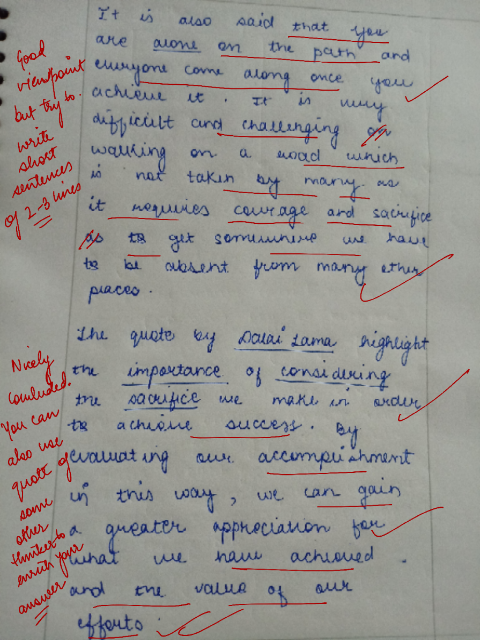 It is also said that you
are alone on the path and
everyone come along once you
achieve it. It is very
difficult and challenging on
walking on a road which
is not taken by many as
it requires courage and sacrifice
as to get somewhere we have
to be absent from many other
places.
The quote by Dalai Lama highlight
the importance of considering
the sacrifice we make in order
to achieve success. By
evaluating our accomplishment
in this way, we can gain
a greater appreciation for
what we have achieved
and the value of our
efforts.
Good
viewpoint
but try to
write
short
sentences
of 2-3 lines
Nicely
concluded.
You can
also use
quote of
some
other
thinker to
enrich your
answer